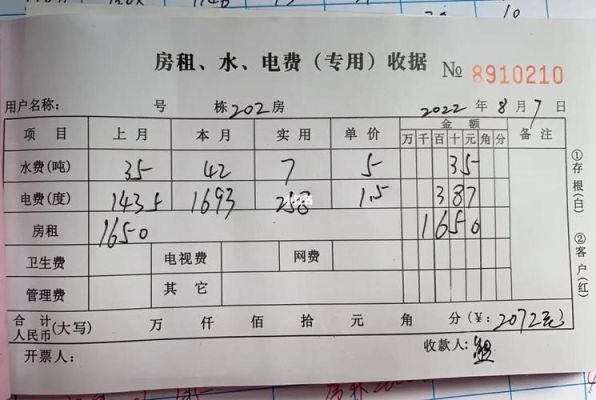 房租、水、电费（专用）收据 № 8910210
用户名称： 号 栋202房 2022年8月7日
项目 上月 本月 实用 单价 金额 备注
万 千 百 十 元 角 分
水费(吨) 35 42 7 5 35
电费(度) 1435 1693 258 1.5 387
房租 1650 1650
卫生费 电视费 网费
管理费 其它
合计人民币(大写) 万 仟 佰 拾 元 角 分(¥: 2072元)
开票人： 收款人：
①存根(白)
②客户(红)
10